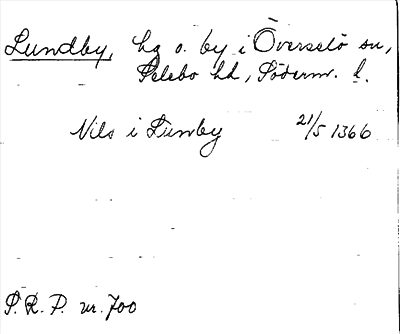 Lundby, hg o. by i Överselö sn,
Selebo hd, Söderm. l.
Nils i Lunby 21/5 1366
S. R. P. nr. 700